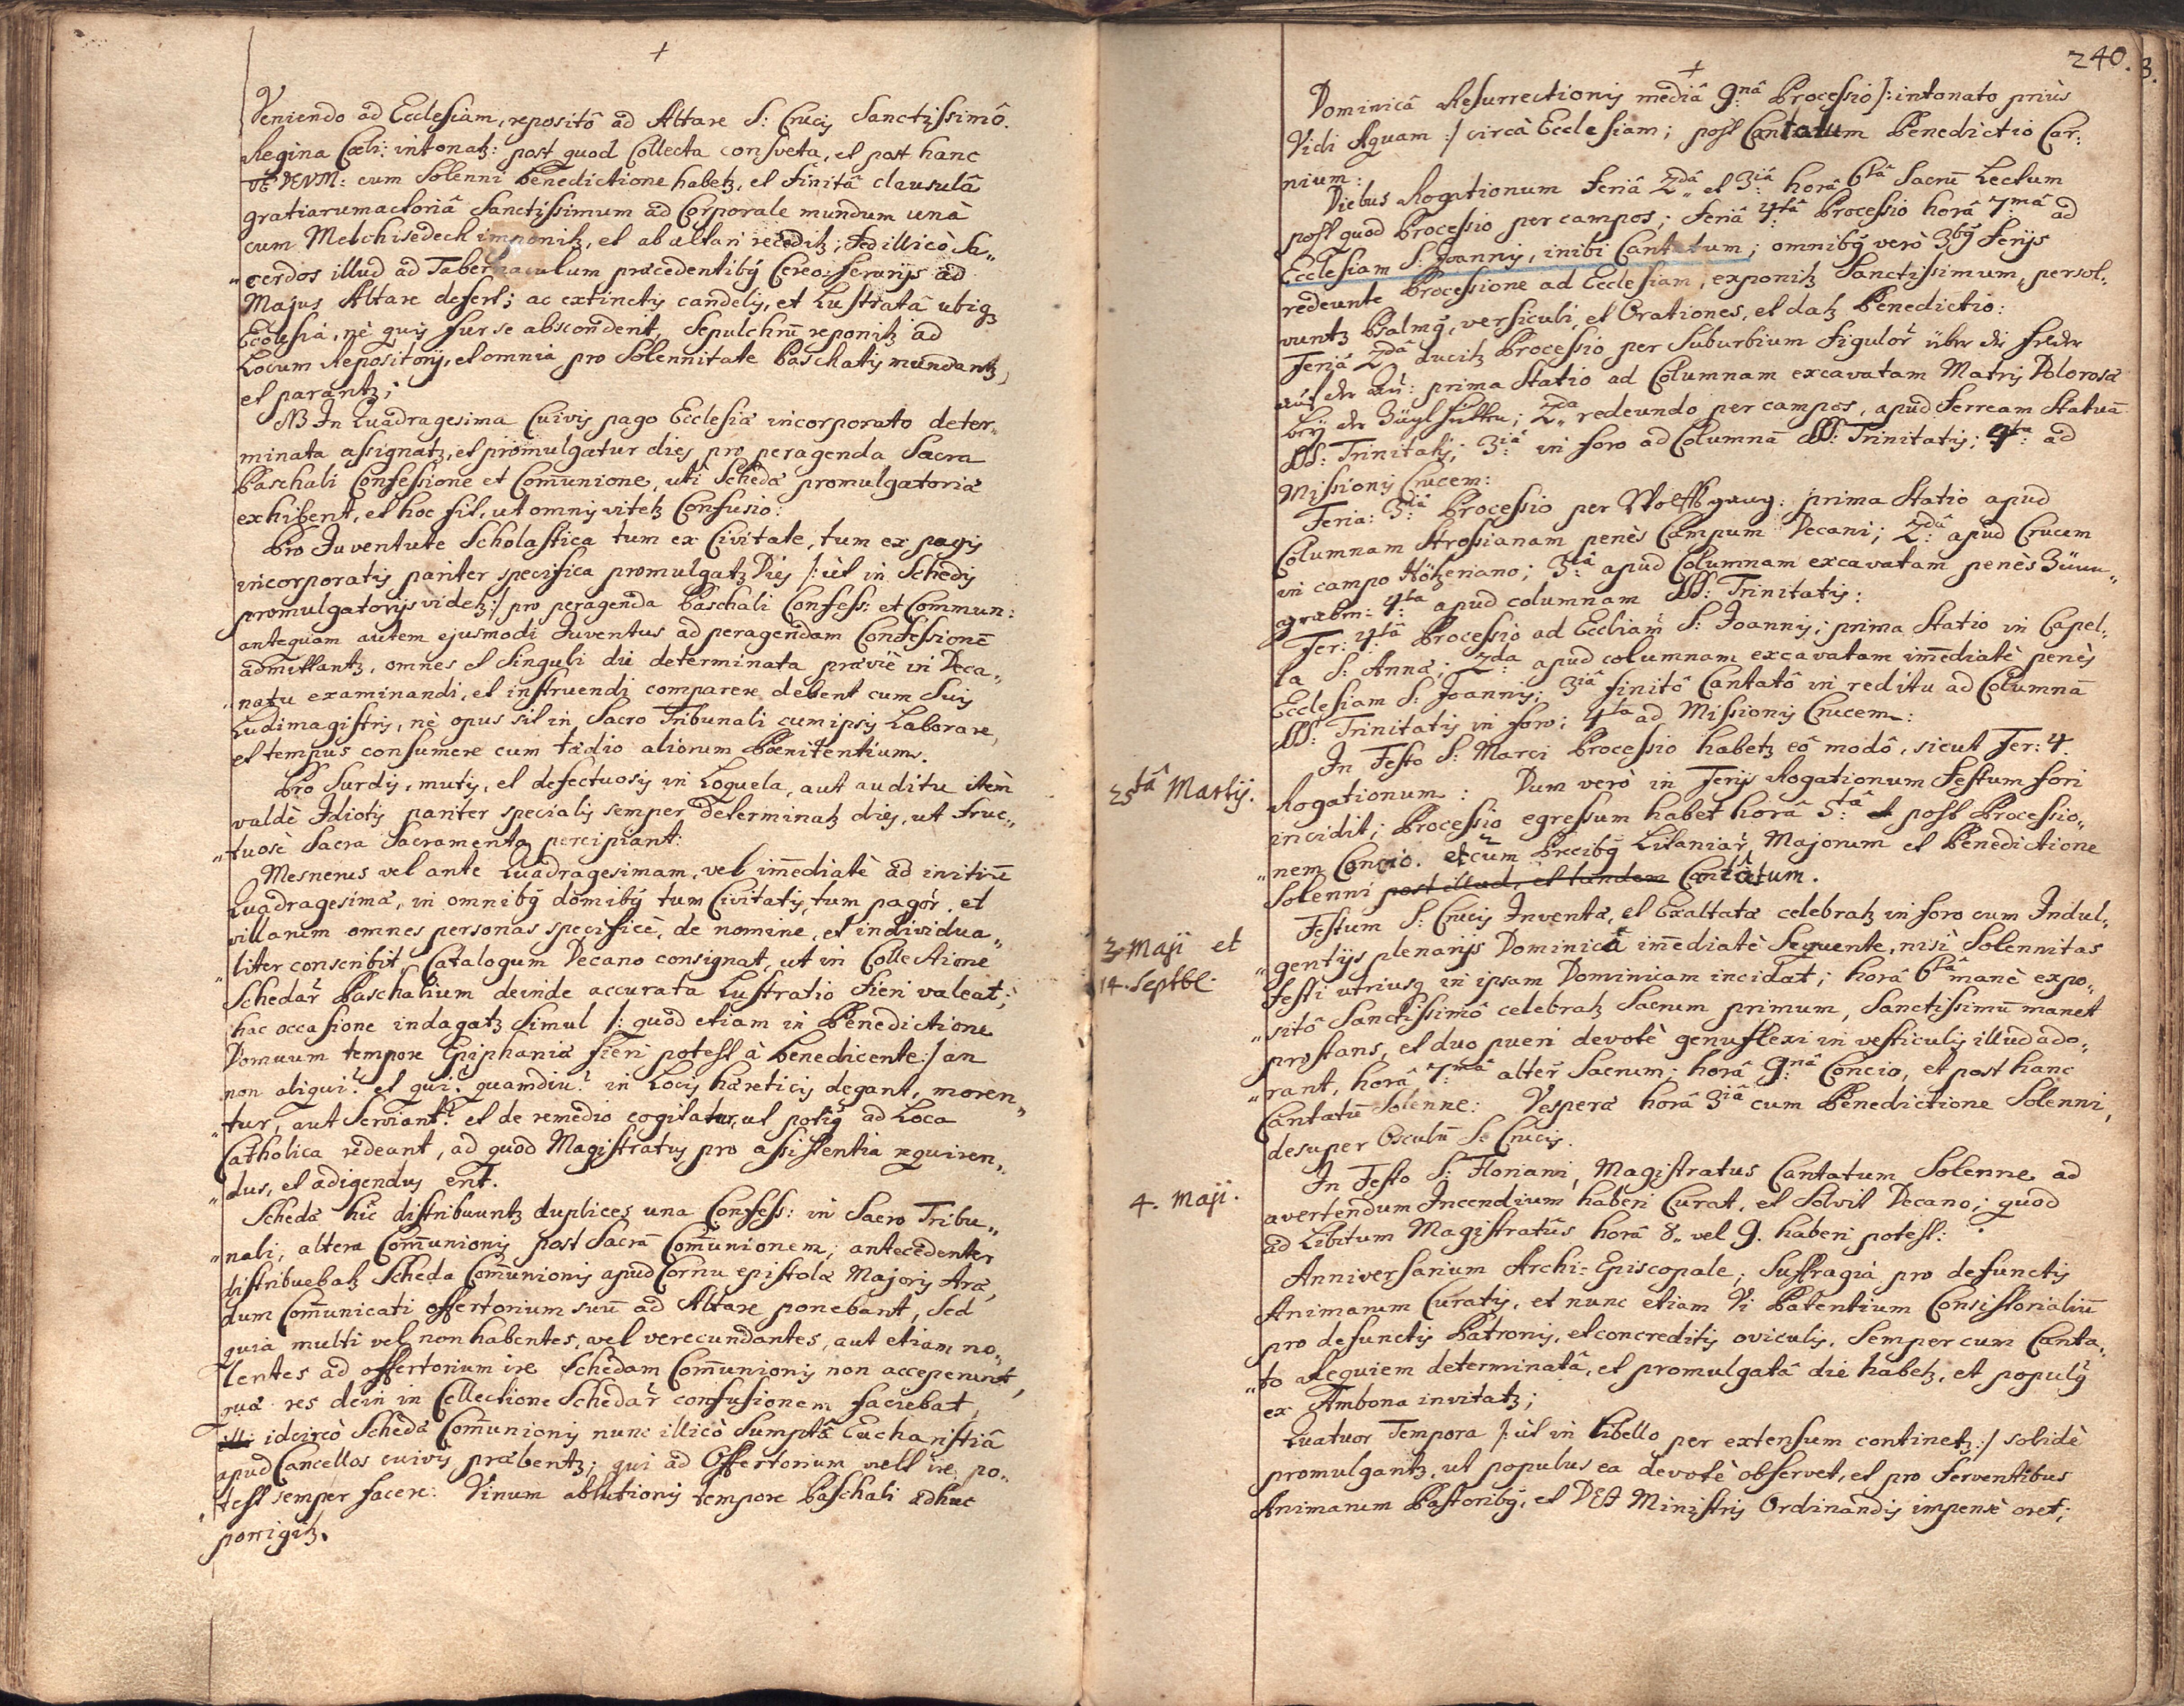 +
Veniendo ad Ecclesiam, repositô ad Altare S: Crucis Sanctissimô.
Regina Cœli: intonatz: post quod Collecta consveta, et post hanc
TE DEUM: cum Solenni Benedictione habetz, et finitâ clausulâ
gratiarumactoriâ Sanctissimum ad Corporale mundum unà
cum Melchisedech imponitz, et ab altari recèditz; Sed illicò Sa„
„cerdos illud ad Tabernaculum præcedentibq Cereo: ferarijs ad
Majus Altare defert; ac extinctis candelis, et Lustratâ ubiqz
Ecclesiâ, nè quis fur se absconderit, Sepulchrū reponitz ad
Locum Repositorij, et omnia pro Solennitate Paschatis mundantz,
et parantz;
NB In Quadragesima Cuivis pago Ecclesiæ incorporato deter„
minata assignatz, et promulgatur dies pro peragenda Sacra
Paschali Confessione et Com̄unione, uti Schedæ promulgatoriæ
exhibent, et hoc fit, ut omnis vitetz Confusio:
Pro Juventute Scholastica tum ex Civitate, tum ex pagis
incorporatis pariter specifica promulgatz Dies /: ùt in Schedis
promulgatorijs videtz:/ pro peragenda Paschali Confess: et Commun:
antequam autem ejusmodi Juventus ad peragendam Confessionē
admittantz, omnes et Singuli die determinata præviè in Deca„
„natu examinandi, et instruendi comparere debent cum Suis
Ludimagistris, nè opus sit in Sacro Tribunali cum ipsis Laborare,
et tempus consumere cum tædio aliorum Pœnitentium.
Pro Surdis, mutis, et defectuosis in Loquela, aut auditu itèm
valdè Idiotis pariter specialis semper determinatz dies, ut fruc„
„tuosè Sacra Sacramenta percipiant:
Mesnerus vel ante Quadragesimam, vel im̄ediatè ad initiū
Quadragesimæ, in omnibq domibq tum Civitatis, tum pagor̄, et
villarum omnes personas specificè, de nomine, et individua„
„liter conscribit, Catalogum Decano consignat, ut in Collectione
Schedar̄ Paschalium deinde accurata Lustratio fieri valeat;
hac occasione indagatz Simul /: quod etiam in Benedictione
Domuum tempore Epiphaniæ fieri potest à benedicente:/ an
non aliqui? et qui? quamdiu? in Locis hæreticis degant, moren„
„tur, aut Serviant? et de remedio cogitatur, ut potiq ad Loca
Catholica redeant, ad quod Magistratus pro assistentia requiren„
„dus, et adigendus erit.
Schedæ hìc distribuuntz duplices una Confess: in Sacro Tribu„
„nali, altera Com̄unionis post Sacrā Com̄unionem; antecedenter
distribuebatz Scheda Com̄unionis apud Cornu epistolæ Majoris Aræ,
dum Com̄unicati offertorium suū ad Altare ponebant, Sed
quia multi vel non habentes, vel verecundantes, aut etiam no„
lentes ad offertorium ire Schedam Com̄unionis non acceperunt,
quæ res dein in Collectione Schedar̄ confusionem faciebat,
idcircò Scheda Com̄unionis nunc illicò Sumptâ Eucharistiâ
apud Cancellos cuivis præbentz; qui ad Offertorium vult ire, po„
„test semper facere: Vinum ablutionis tempore Paschali adhuc
porrigitz.
240.
+
Dominicâ Resurrectionis mediâ 9:nâ Processio /: intonato priùs
Vidi Aquam :/ circà Ecclesiam; post Cantatum Benedictio Car:
nium:
Diebus Rogationum Feriâ 2dâ et 3:iâ horâ 6tâ Sacrū Lectum
post quod Processio per campos; Feriâ 4:tâ Processio horâ 7mâ ad
Ecclesiam S: Joannis, inibi Cantatum; omnibq verò 3bq Ferijs
redeunte Processione ad Ecclesiam, exponitz Sanctissimum, persol„
vuntz Psalmq, versiculi, et Orationes, et datz Benedictio:
Feriâ 2dâ ducitz Processio per Suburbium Figulor̄ über die felder
auf der Au: prima Statio ad Columnam excavatam Matris Dolorosæ
bey der Ziegl hütten; 2da redeundo per campos, apud Ferream Statuā
SS: Trinitatis; 3:iâ in foro ad Columnā SS: Trinitatis; 4:ta ad
Missionis Crucem:
Feria: 3:iâ Processio per Wolffsgrug: prima Statio apud
Columnam Strosianam penès Campum Decani; 2:dâ apud Crucem
in campo Hötzeriano; 3:iâ apud Columnam excavatam penès
graben: 4:ta apud columnam SS: Trinitatis:
Fer: 4:tâ Processio ad Eccliam̄ S: Joannis; prima Statio in Capel„
la S: Annæ; 2:da apud columnam excavatam im̄ediatè penès
Ecclesiam S: Joannis; 3iâ finitô Cantatô in reditu ad Columnā
SS: Trinitatis in foro; 4ta ad Missionis Crucem:
In Festo S: Marci Processio habetz eô modô, sicut Fer: 4.
25tâ Martij.
Rogationum: Dum verò in Ferijs Rogationum Festum fori
incidit; Processio egressum habet horâ 5:tâ et post Processio„
„nem Concio. et cum Precibq Litaniar̄ Majorum et Benedictione
Solenni post illud, et tandem Cantatum.
Festum S: Crucis Inventæ, et Exaltatæ celebratz in foro cum Indul„
3 Maji et
„gentijs plenarijs Dominicâ im̄ediatè Sequente, nisi Solennitas
14. Septbl.
Festi utriusq in ipsam Dominicam incidat; horâ 6tâ manè expo„
„sitô Sanctissimô celebratz Sacrum primum, Sanctissimū manet
prostans, et duo pueri devotè genuflexi in vesticulis illud ado„
„rant, horâ 7:mâ alter̄ Sacrum; horâ 9:nâ Concio, et post hanc
Cantatū Solenne: Vesperæ horâ 3iâ cum Benedictione Solenni,
desuper Osculū S: Crucis.
In Festo S: Floriani, Magistratus Cantatum Solenne ad
4. Maji.
avertendum Incendium haberi Curat, et Solvit Decano; quod
ad Libitum Magistratûs horâ 8. vel 9. haberi potest:
Anniversarium Archi=Episcopale, Suffragia pro defunctis
Animarum Curatis, et nunc etiam Vi Patentium Consistorialiū
pro defunctis Patronis, et concreditis oviculis, Semper cum Canta„
„to Requiem determinatâ, et promulgatâ die habetz, et populq
ex Ambona invitatz;
Quatuor Tempora /: ùt in Libello per extensum continetz:/ solidè
promulgantz, ut populus ea devotè observet, et pro ferventibus
Animarum Pastoribq, et DEI Ministris Ordinandis impensè oret;